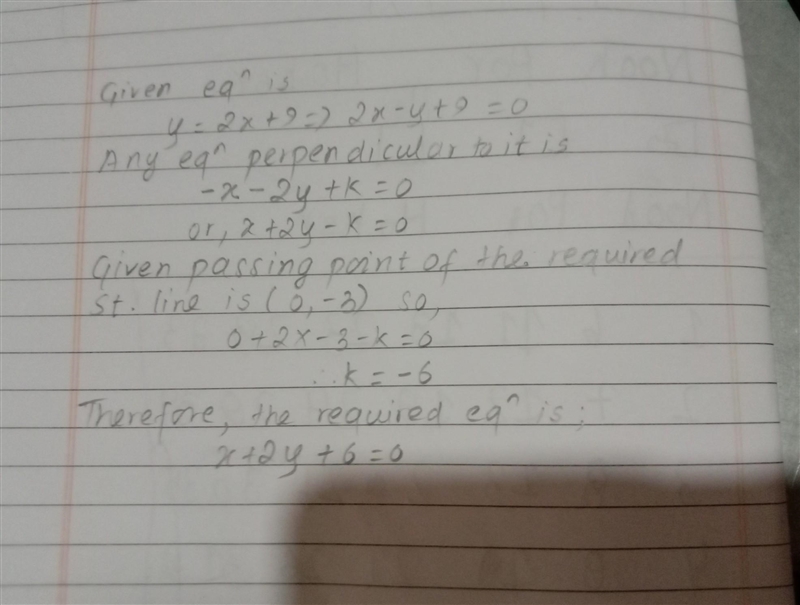 Given eqⁿ is
y = 2x + 9 => 2x - y + 9 = 0
Any eqⁿ perpendicular to it is
-x - 2y + k = 0
or, x + 2y - k = 0
Given passing point of the required
st. line is (0, -3) so,
0 + 2x - 3 - k = 0
∴ k = -6
Therefore, the required eqⁿ is;
x + 2y + 6 = 0